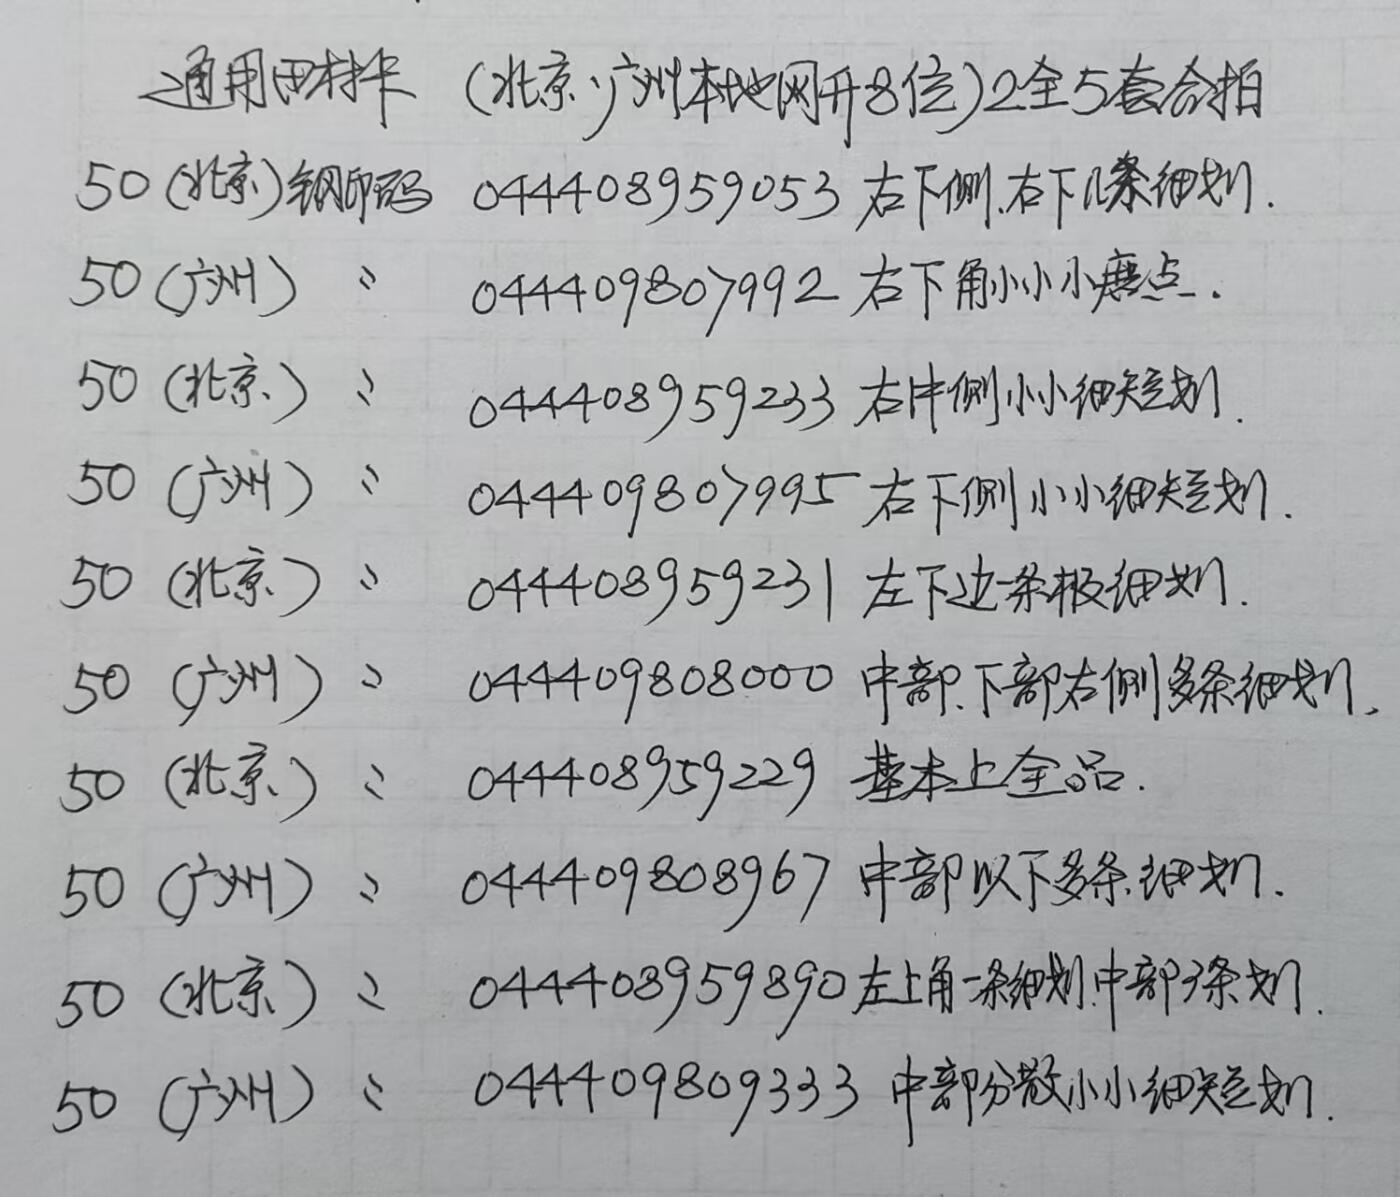 通用田村卡 (北京、广州本地网升8位)2全5套合拍
50(北京)钢印码 044408959053 右下侧、右下几条细划.
50(广州) 〃 044409807992 右下角小小小磨点.
50(北京) 〃 044408959233 右中侧小小细短划.
50(广州) 〃 044409807995 右下侧小小细短划.
50(北京) 〃 044408959231 左下边一条极细划.
50(广州) 〃 044409808000 中部、下部右侧多条细划.
50(北京) 〃 044408959229 基本上全品.
50(广州) 〃 044409808967 中部以下多条细划.
50(北京) 〃 044408959890 左上角一条细划.中部3条划.
50(广州) 〃 044409809333 中部分散小小细短划.